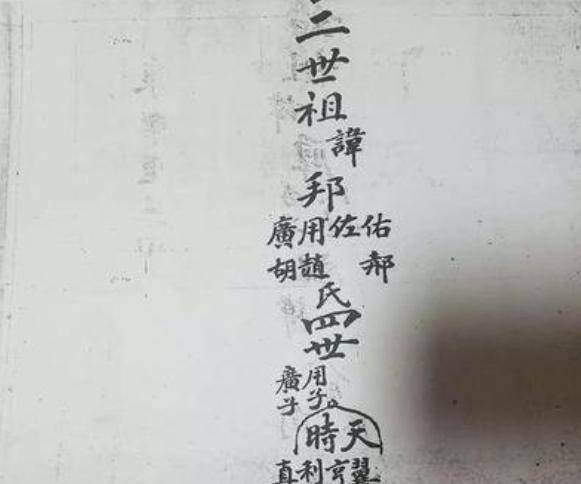 三世祖
諱
邦
佑佐用廣
郝趙胡
氏
四世
用子
廣子
天時
亨利真